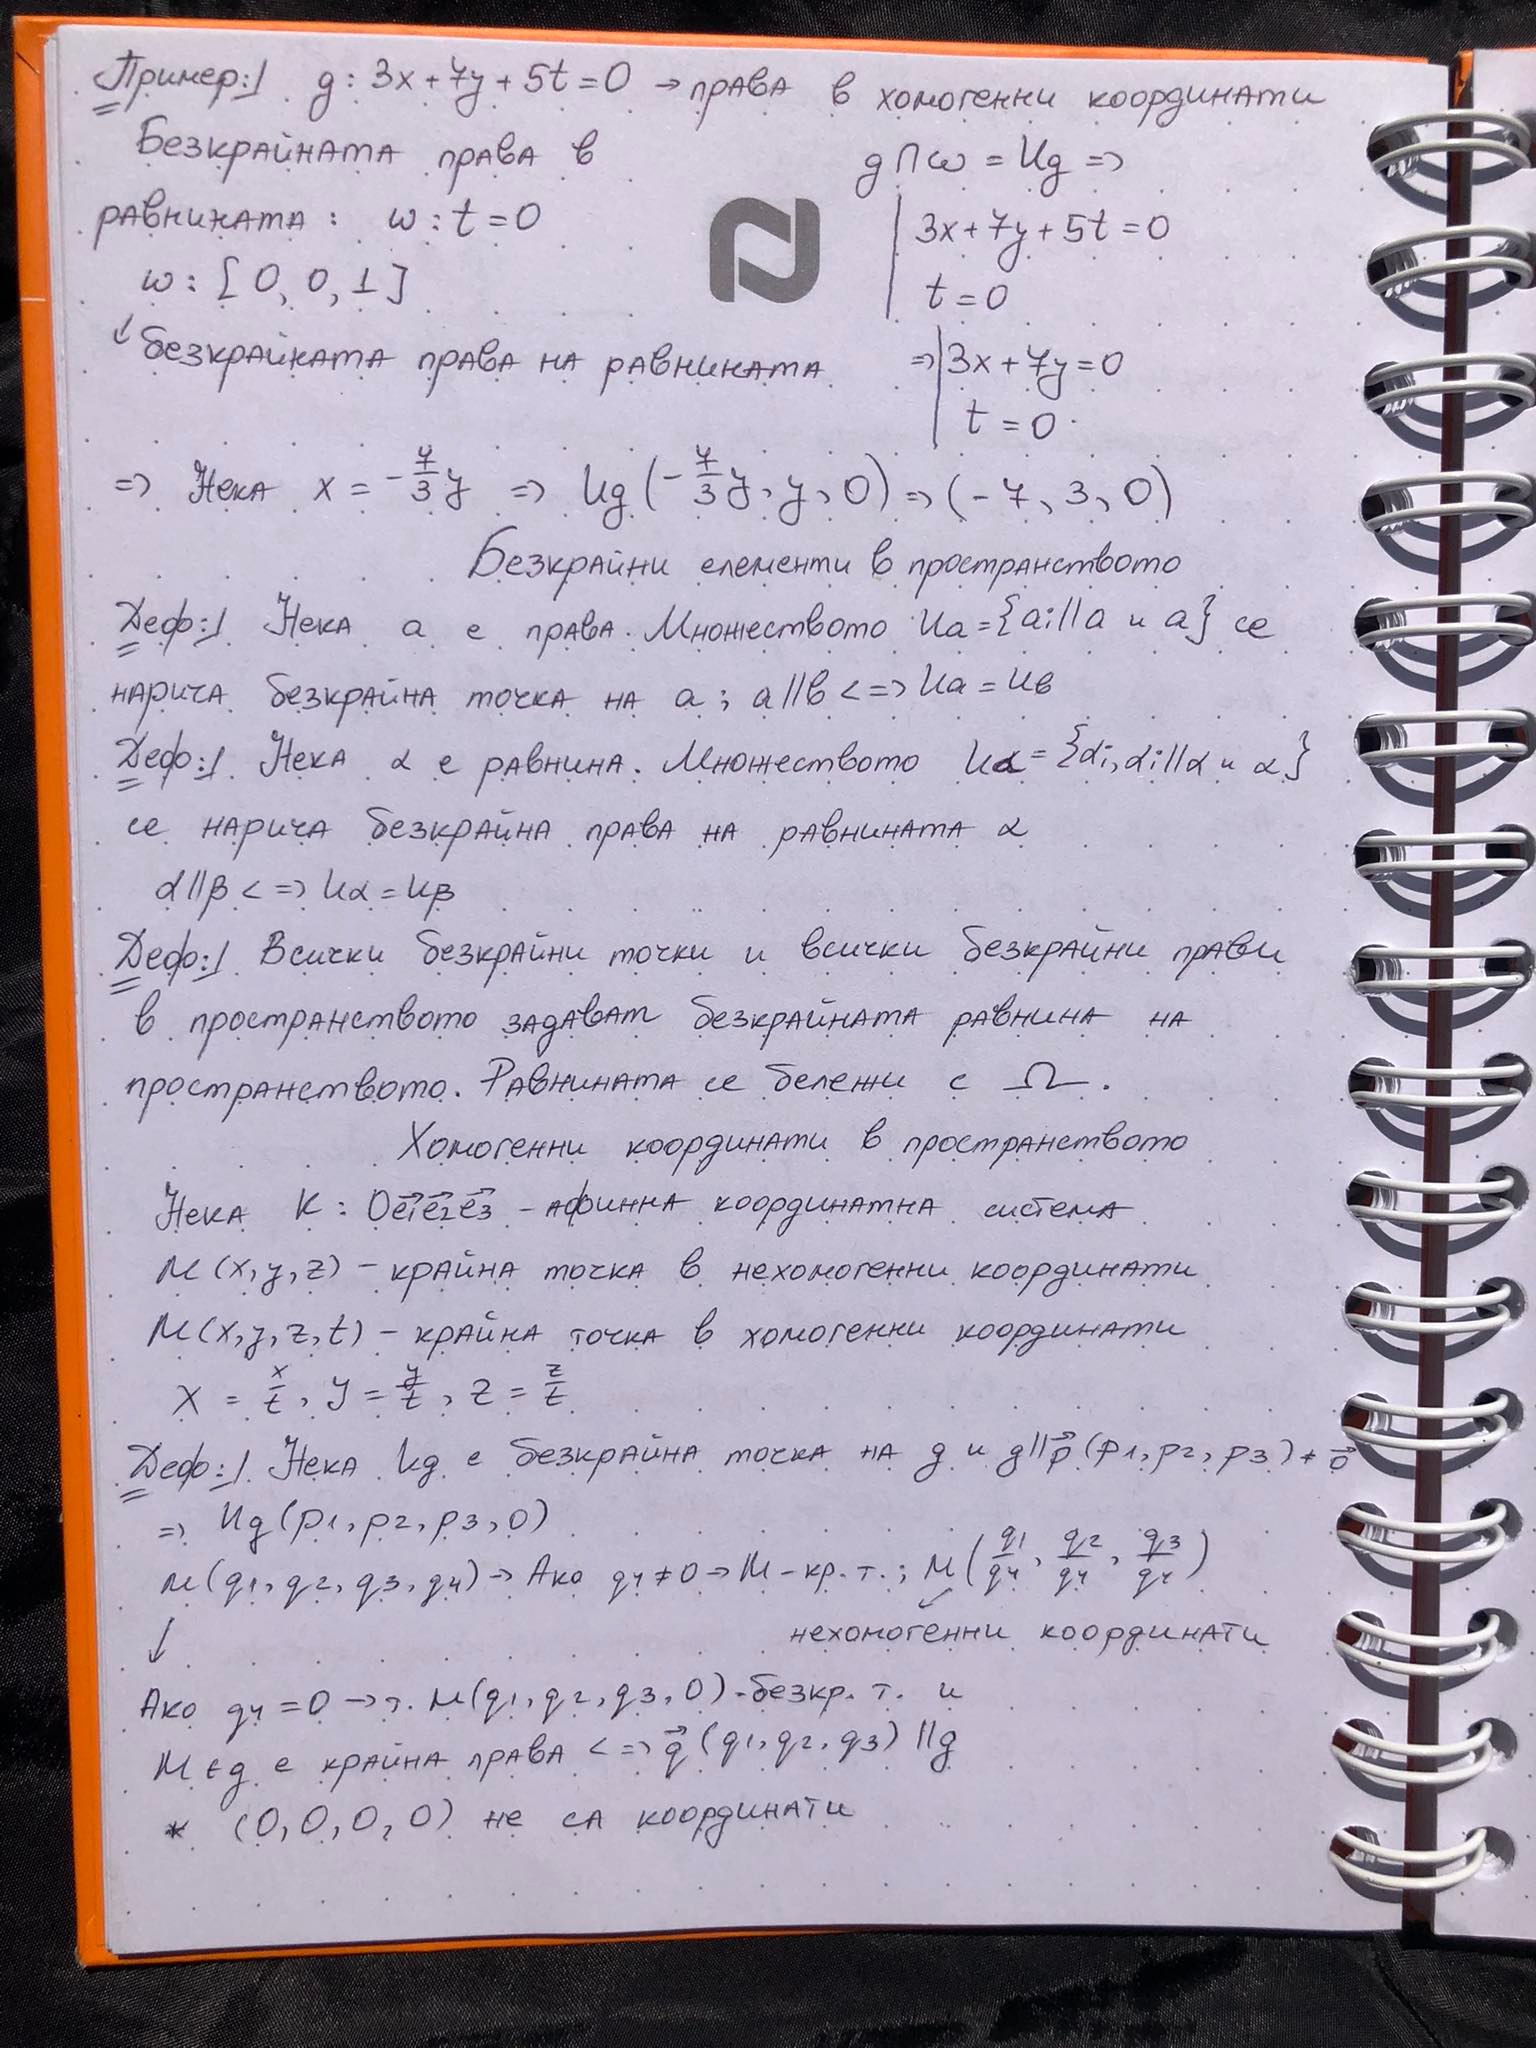 Пример:/ g: 3x+7y+5t=0 → права в хомогенни координати
Безкрайната права в
равнината: ω: t=0
ω: [0, 0, 1]
↙ безкрайната права на равнината
g∩ω = Ug =>
3x+7y+5t=0
t=0
=> 3x+7y=0
t=0
=> Нека x = -7/3 y => Ug (-7/3 y, y, 0) => (-7, 3, 0)
Безкрайни елементи в пространството
Деф:/ Нека a е права. Множеството Ua={ai//a и a} се
нарича безкрайна точка на a; a//b <=> Ua=Ub
Деф:/ Нека α е равнина. Множеството Uα={αi, αi//α и α}
се нарича безкрайна права на равнината α
α//β <=> Uα=Uβ
Деф:/ Всички безкрайни точки и всички безкрайни прави
в пространството задават безкрайната равнина на
пространството. Равнината се бележи с Ω.
Хомогенни координати в пространството
Нека K: Oe⃗1e⃗2e⃗3 - афинна координатна система
M(x,y,z) - крайна точка в нехомогенни координати
M(x,y,z,t) - крайна точка в хомогенни координати
x = x/t, y = y/t, z = z/t
Деф:/ Нека Ug е безкрайна точка на g и g//p⃗(p1,p2,p3)≠o⃗
=> Ug(p1,p2,p3,0)
M(q1,q2,q3,q4) → Ако q4≠0 → M-кр.т.; M(q1/q4, q2/q4, q3/q4)
↓ ↙
нехомогенни координати
Ако q4=0 → т. M(q1,q2,q3,0)-безкр. т. и
M∈g е крайна права <=> q⃗(q1,q2,q3)//g
* (0,0,0,0) не са координати